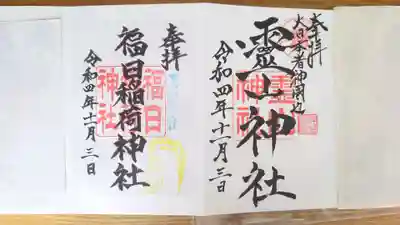 奉拝
大日本者神国也
靈山神社
霊山神社
令和四年十一月三日
奉拝
福日稲荷神社
福日神社
令和四年十一月三日